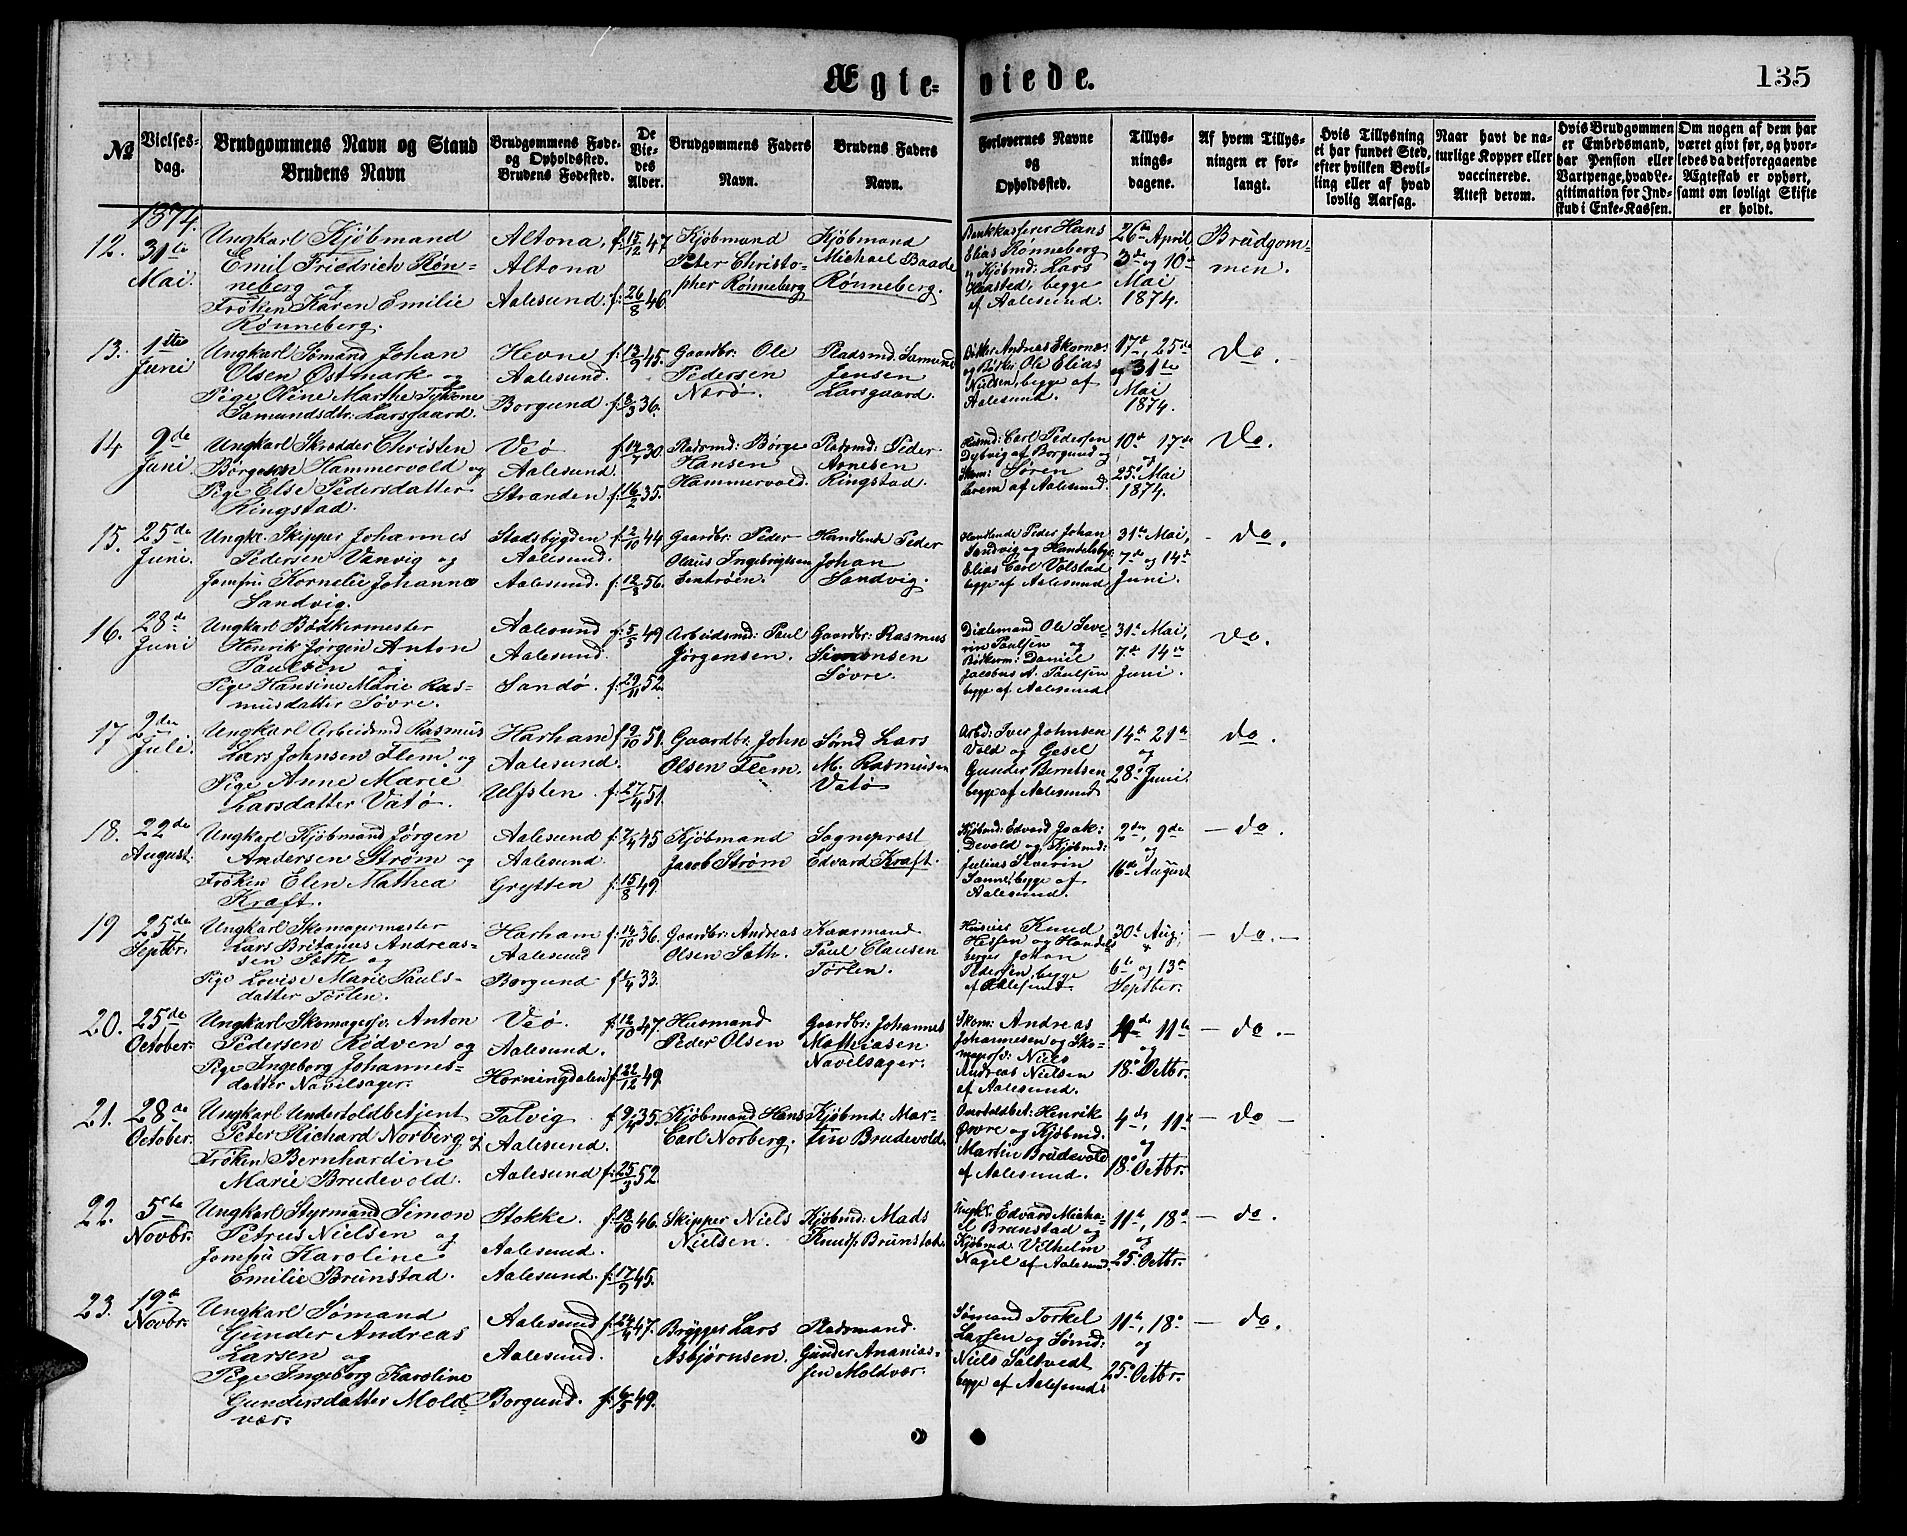 Ægteviede.
135
No
Vielses-
dag.
Brudgommens Navn og Stand
Brudens Navn
Brudgommens Føde-
og Opholdssted.
Brudens Fødested.
De
Vie-
des
Alder.
Brudgommens Faders
Navn.
Brudens Faders
Navn.
Forlovernes Navne
og
Opholdssted.
Tillys-
nings-
dagene.
Af hvem Tillys-
ningen er for-
langt.
Hvis Tillysning
ei har fundet Sted,
efter hvilken Bevil-
ling eller af hvad
lovlig Aarsag.
Naar havt de na-
turlige Kopper eller
vaccinerede.
Attest derom.
Hvis Brudgommen
er Embedsmand,
har Pension eller
Vartpenge, hvad Le-
gitimation for Ind-
skud i Enke-Kassen.
Om nogen af dem har
været givt før, og hvor-
ledes da det foregaaende
Ægteskab er ophørt,
samt om lovligt Skifte
er holdt.
1874.
12.
31te
Mai.
Ungkarl Kjøbmand
Emil Friedrich Røn-
neberg og
Frøken Karen Emilie
Rønneberg.
Altona,
Altona
Aalesund
f. 15/12 47
f. 26/8 46.
Kjøbmand
Peter Christo-
pher Rønneberg
Kjøbmand
Michael Baade
Rønneberg.
Bankkasserer Hans
Elias Rønneberg
og Kjøbmd: Lars
begge
af Aalesund.
26de April
3de og 10de
Mai
1874.
Brudgom-
men.
13.
1ste
Juni
Ungkarl Sømand Johan
Olsen Østmark og
Pige Oline Marthe
Samundsdtr: Larsgaard.
Hevne
Aalesund.
Borgund.
f. 13/9 45.
f. 8/3 36.
Gaardbr: Ole
Pedersen
Nørø.
Pladsmd. Samund
Jensen
Larsgaard.
Bødker Andreas Skornæs
og Bødker Ole Elias
Nielsen, begge af
Aalesund.
17de, 25de
og 31te
Mai
1874.
Do.
14
9de
Juni.
Ungkarl Skrædder Christen
Børgesen Hammervold og
Pige Else Pedersdatter
Ringstad.
Veø
Aalesund.
Stranden
f. 14/7 30.
f. 16/2 35.
Pladsmd: Børge
Hansen
Hammervold.
Pladsmd: Peder
Arnesen
Ringstad.
Husmd: Carl Pedersen
Dybvig af Borgund og
Skom: Søren
af Aalesund.
10de 17de
og
25de Mai
1874.
Do.
15.
25de
Juni.
Ungk. Skipper Johannes
Pedersen Vanvig og
Jomfru Kornelie Johanne
Sandvig.
Stadsbygden
Aalesund.
Aalesund.
f. 2/10 44
f. 12/8 56.
Gaardbr: Peder
Olaus Ingebrigtsen
Handlende Peder
Johan
Sandvig.
Handlende Peder Johan
Sandvig og Handelsb:
Elias Carl Volstad
begge af Aalesund
31te Mai,
7de og 14de
Juni.
- do.
16.
28de
Juni
Ungkarl Bødkermester
Henrik Jørgen Anton
Paulsen og
Pige Hansine Marie Ras-
musdatter Søvre.
Aalesund
Aalesund.
Sandø.
f. 5/5 49
f. 29/11 52
Arbeidsmd: Paul
Jørgensen.
Gaardbr: Rasmus
Simensen
Søvre.
Ole Seve-
rin Paulsen og
Bødkerm: Daniel
Jacobus A. Paulsen
begge af Aalesund
31te Mai,
7de 14de
Juni.
do.
17
2den
Juli.
Ungkarl Arbeidsmd Rasmus
Lars Johnsen Flem og
Pige Anne Marie
Larsdatter Vatø.
Harham
Aalesund.
Ulfsten
f 9/10 51.
f. 27/4 51.
Gaardbr. John
Olsen Flem.
Sømd Lars
M. Rasmusen
Vatø
Arbd: Iver Johnsen
Vold og Gesel
Gunder Berntsen
begge af Aalesund
14de 21de
og
28de Juni.
do.
18.
22de
August.
Ungkarl Kjøbmand Jørgen
Andersen Strøm og
Frøken Elen Mathea
Kraft.
Aalesund
Aalesund.
Grytten
f. 7/4 45
f. 15/8 49.
Kjøbmand
Jacob Strøm
Sogneprest
Edvard Kraft.
Kjøbmd: Edvard Joak:
Devold og Kjøbmd:
Julius Severin
begge af
Aalesund.
2den, 9de
og
16de August
- do.
19
25de
Septbr.
Ungkarl Skomagermester
Lars Britanus Andreas-
sen Sath og
Pige Lovise Marie Pauls-
datter Torlen.
Harham
Aalesund
Borgund
f. 14/10 36.
33.
Gaardbr: Andreas
Olsen Sath.
Kaarmand
Paul Clausen
Torlen.
Huseier Knud
Hessen og Handels
berger Johan
Pedersen, begge
af Aalesund.
30te Aug;
6te og 13de
Septber.
- do. -
20.
25de
October.
Ungkarl Skomagersv. Anton
Pedersen Rødven og
Pige Ingeborg Johannes-
datter Navelsager.
Veø.
Aalesund.
Horningdalen
f. 12/10 47.
f. 22/12 49.
Husmand
Peder Olsen
Gaardbr: Johannes
Mathiasen
Navelsager.
Skom: Andreas
Johannesen og Sko-
magersv: Niels
Andreas Nielsen
af Aalesund.
4de 11te
og
18de Octbr.
- do. -
21.
28de
October.
Ungkarl Undertoldbetjent
Peter Richard Norberg og
Frøken Bernhardine
Marie Brudevold.
Talvig
Aalesund.
Aalesund
f 9/4 35.
f. 25/3 52
Kjøbmand Hans
Carl Norberg.
Kjøbmd: Mar-
tin Brudevold.
Overtoldbet: Henrik
Øvre og Kjøbmd.
Martin Brudevold
af Aalesund.
4de, 11te
og
18de Octbr.
- do -
22.
5te
Novbr.
Ungkarl Styrmand Simon
Petrus Nielsen og
Jomfru Karoline
Emilie Brunstad.
Stokke.
Aalesund.
Aalesund.
f 18/10 46.
f. 17/9 45.
Skipper Niels
Nielsen.
Kjøbmd: Mads
Knuds. Brunstad.
Ungk. Edvard Micha-
el Brunstad og
Kjøbmd. Vilhelm
Nagel af Aalesund.
11te, 18de
og
25de Octbr.
- do.
23.
19de
Novbr.
Ungkarl Sømand
Gunder Andreas
Larsen og
Pige Ingeborg Karoline
Gundersdatter Mold-
vær.
Aalesund
Aalesund.
Borgund.
47.
49.
Brygger Lars
Asbjørnsen.
Pladsmand
Gunder Ananias-
sen Moldvær.
Sømand Torkel
Larsen og Sømd:
Niels Saltvedt
begge af Aalesund
11te, 18de
og
25de Octbr.
- do.